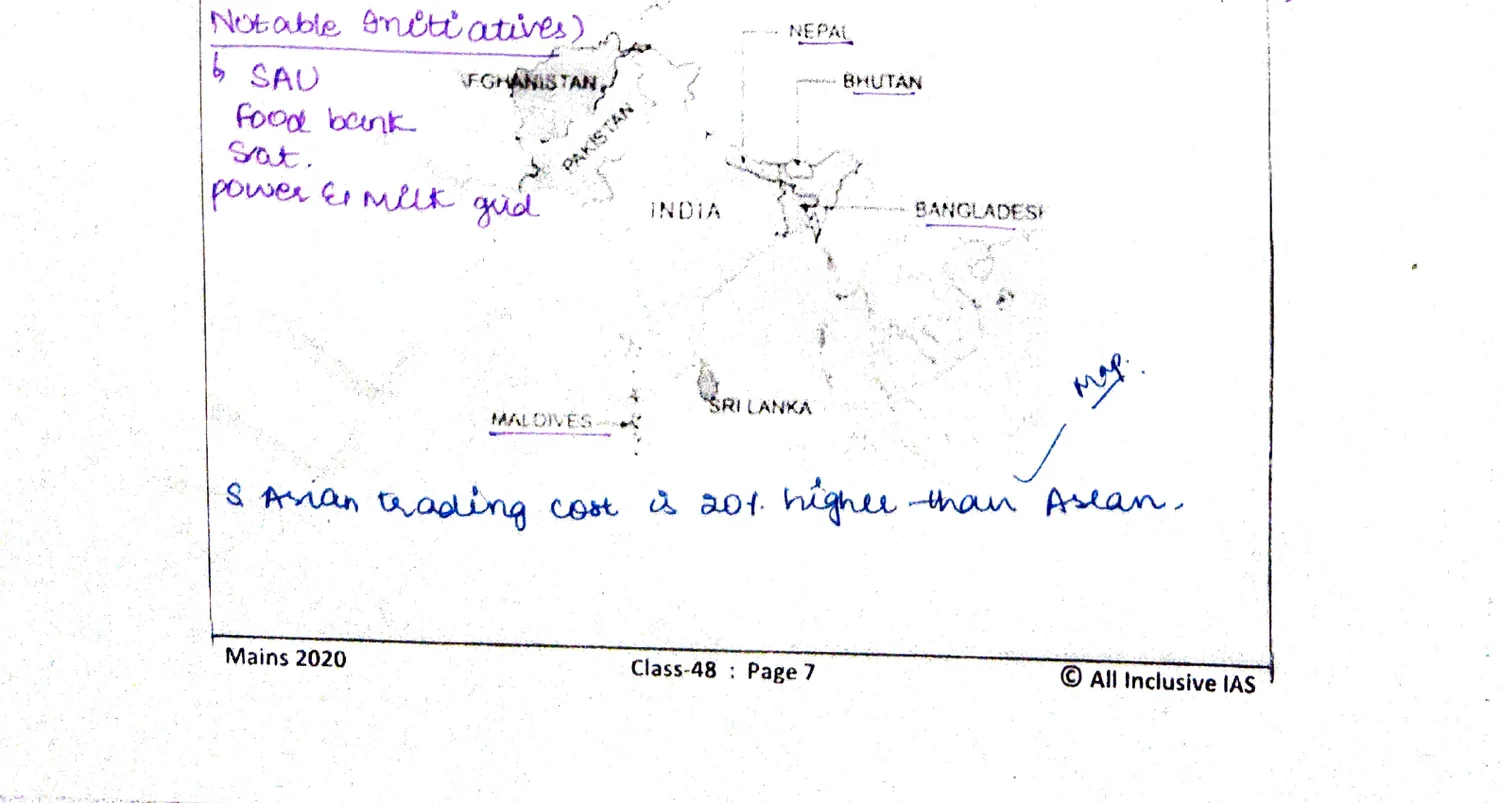 Notable Initiatives)
↳ SAU
Food bank
Sat.
power & Milk grid
NEPAL
BHUTAN
AFGHANISTAN
PAKISTAN
INDIA
BANGLADESH
MALDIVES
SRI LANKA
Map.
S Asian trading cost is 20% higher than Asean.
Mains 2020
Class-48 : Page 7
© All Inclusive IAS